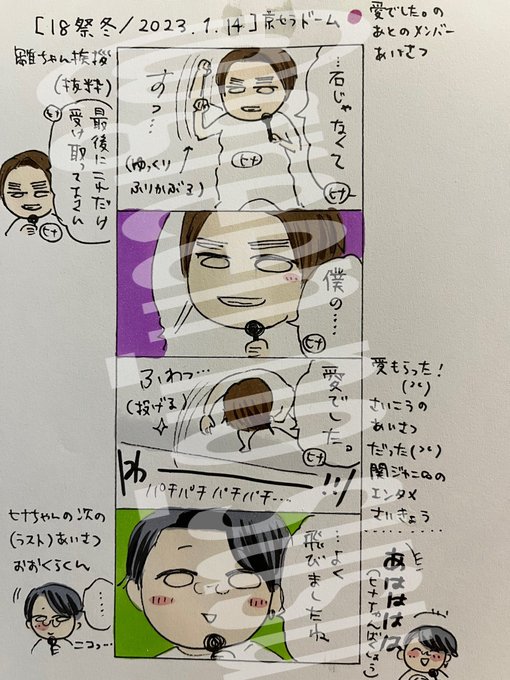 [18祭冬/2023.1.14]京セラドーム
愛でした。の
あとのメンバー
あいさつ
雛ちゃん挨拶
(抜粋)
最後にこれだけ
受け取って下さい
ヒナ
…石じゃなくて
ヒナ
すっ…
(ゆっくり
ふりかぶる)
ヒナ
僕の……
ヒナ
愛でした。
ヒナ
ふわっ…
(投げる)
わーーー!!/
パチパチパチパチ…
愛もらった!
さいこうの
あいさつ
だった
関ジャニ∞の
エンタメ
さいきょう
ヒナちゃんの次の
(ラスト)あいさつ
おおくらくん
……
ニコ…
…よく
飛びましたね
あはははは
(ヒナちゃんばくしょう)